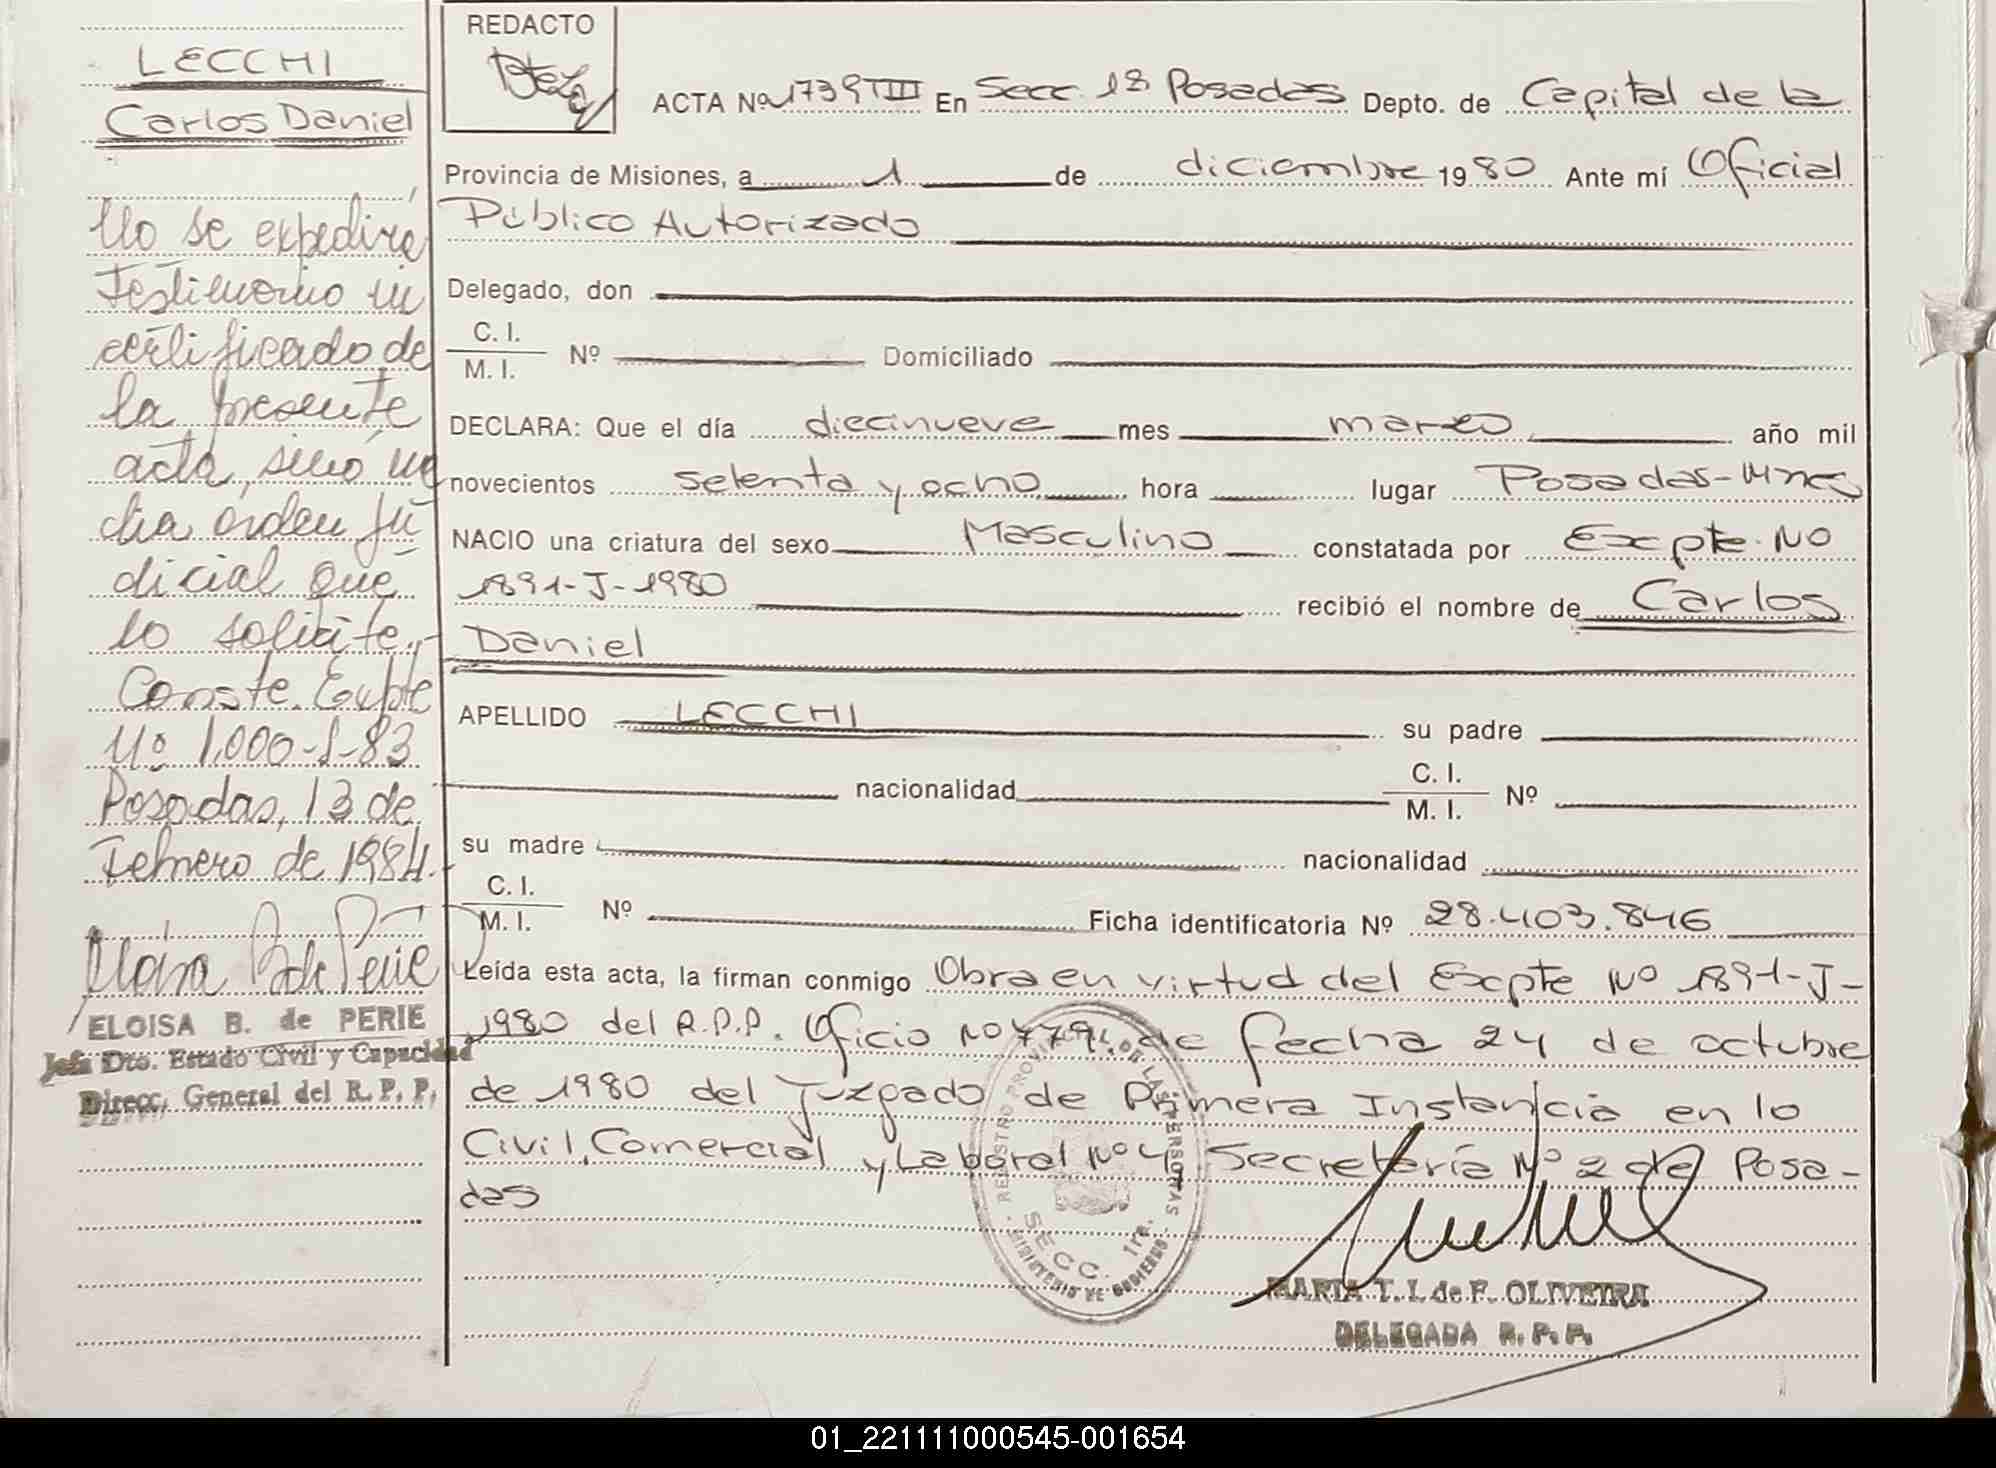 LECCHI
Carlos Daniel
No se expedirá
Testimonio ni
certificado de
la presente
acta, sino me
dia orden ju
dicial que
lo solicite.-
Conste. Expte
Nº 1.000-S-83
Posadas, 13 de
Febrero de 1984.
ELOISA B. de PERIE
Jefa Dto. Estado Civil y Capacidad
Direcc. General del R. P. P.
REDACTO
ACTA Nº 1739 TIII En Secc. 1ª Posadas Depto. de Capital de la
Provincia de Misiones, a 1 de diciembre 1980 Ante mí Oficial
Público Autorizado
Delegado, don
C. I.
M. I. Nº Domiciliado
DECLARA: Que el día diecinueve mes marzo año mil
novecientos setenta y ocho hora lugar Posadas-Mnes
NACIO una criatura del sexo Masculino constatada por Excpte. Nº
1891-J-1980 recibió el nombre de Carlos
Daniel
APELLIDO LECCHI su padre
nacionalidad C. I.
M. I. Nº
su madre nacionalidad
C. I.
M. I. Nº Ficha identificatoria Nº 28.403.846
Leída esta acta, la firman conmigo Obra en virtud del Excpte Nº 1891-J-
1980 del R.P.P. Oficio Nº 779, de fecha 24 de octubre
de 1980 del Juzgado de Primera Instancia en lo
Civil, Comercial y Laboral Nº 4 Secretaría Nº 2 de Posa-
das
REGISTRO PROVINCIAL DE LAS PERSONAS
SECC. 1ra.
MINISTERIO DE GOBIERNO
MARIA T. I. de F. OLIVEIRA
DELEGADA R. P. P.
01_221111000545-001654